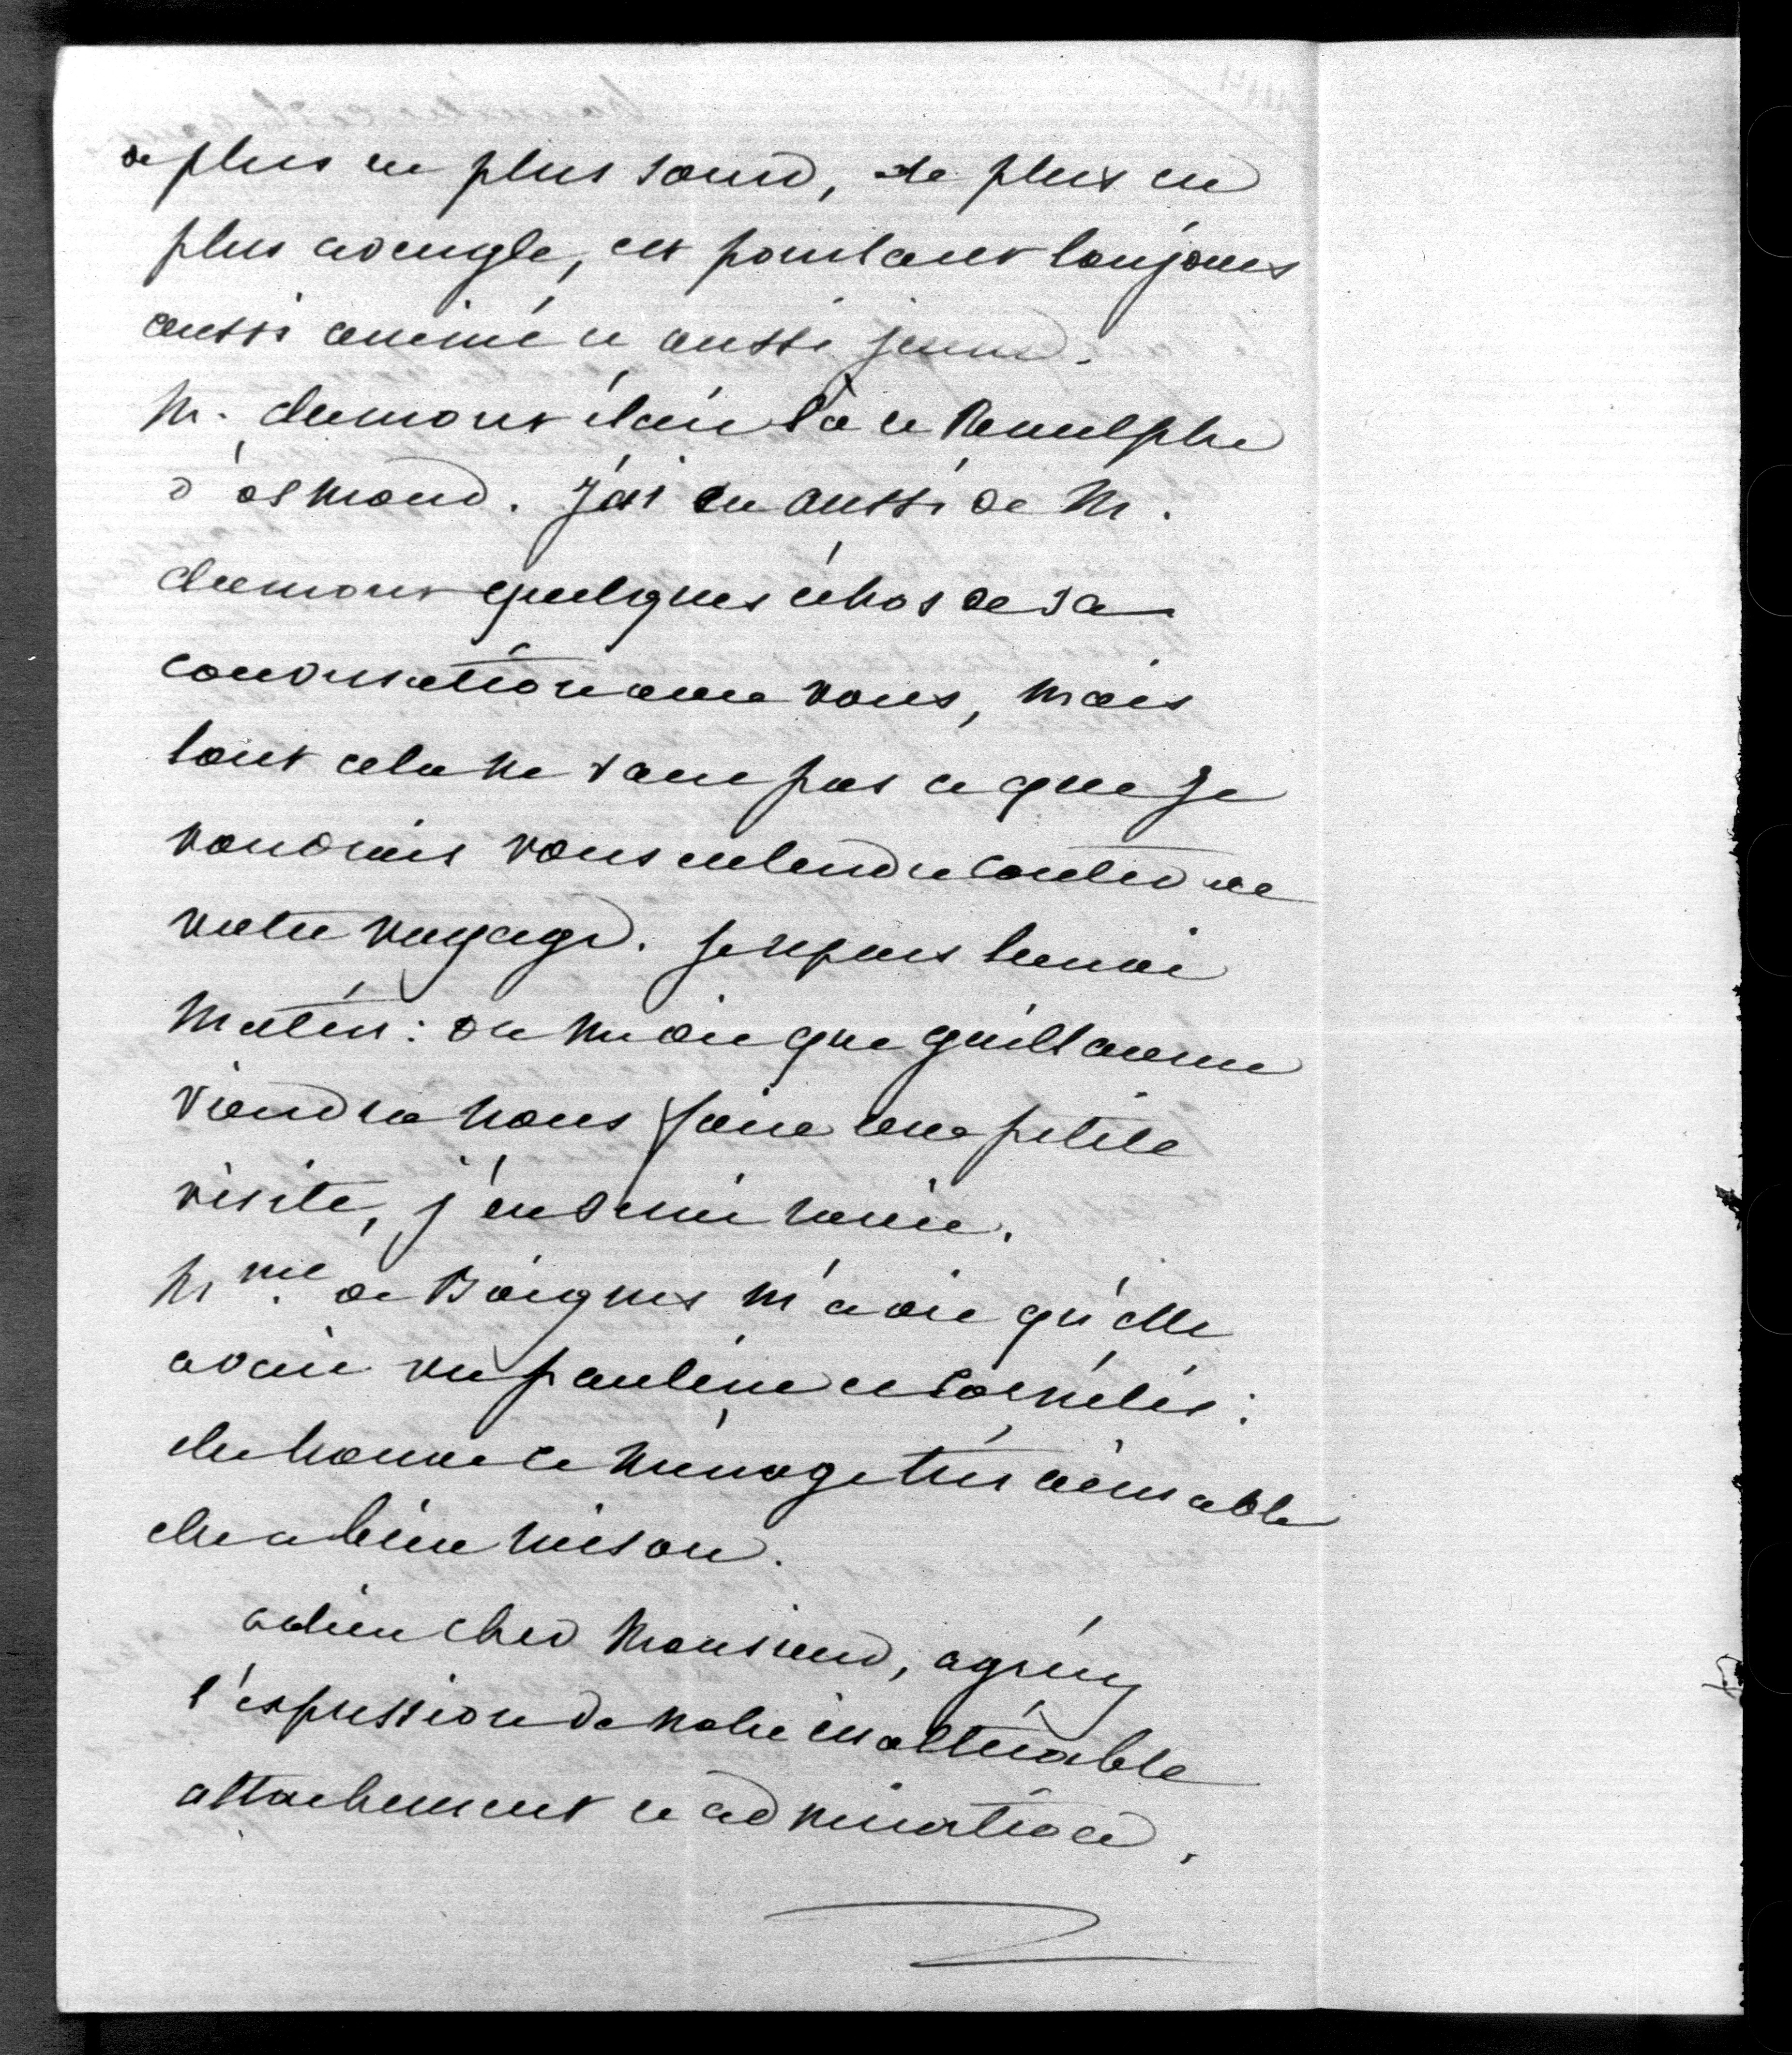 de plus en plus sourd, de plus en
plus aveugle, est pourtant toujours
aussi animé et aussi jeune.
M. dumont était là et Renulphe
d'osmond. J'ai eu aussi de M.
dumont quelques échos de sa
conversation avec vous, mais
tout cela ne vaut pas ce que je
voudrais vous entendre conter de
votre voyage. Je repars
matin: on me dit que guillaume
viendra nous faire une petite
visite, j'en serai ravie.
Mme de Boignes m'a dit qu'elle
avait vu pauline et Cornélis:
elle trouve le ménage très aimable
elle a bien raison.
adieu cher Monsieur, agréez
l'expression de notre inaltérable
attachement et admiration.